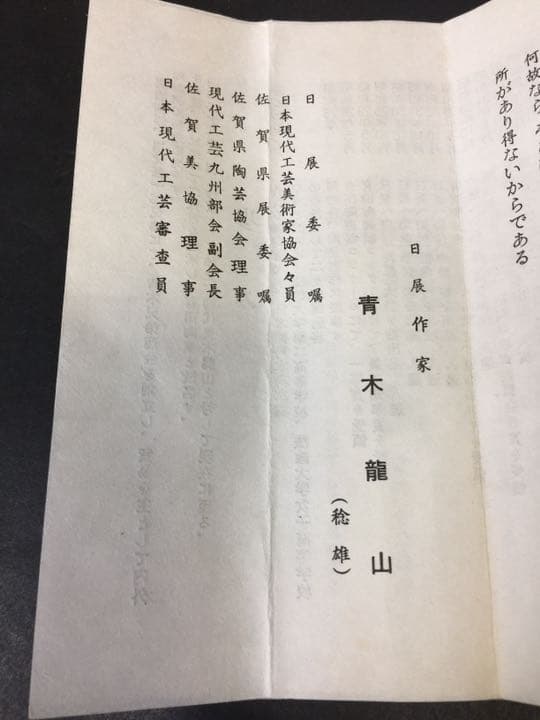 何故なら
所があり得ないからである
日展作家
青木龍山
(稔雄)
日展委嘱
日本現代工芸美術家協会々員
佐賀県展委嘱
佐賀県陶芸協会理事
現代工芸九州部会副会長
佐賀美協理事
日本現代工芸審査員